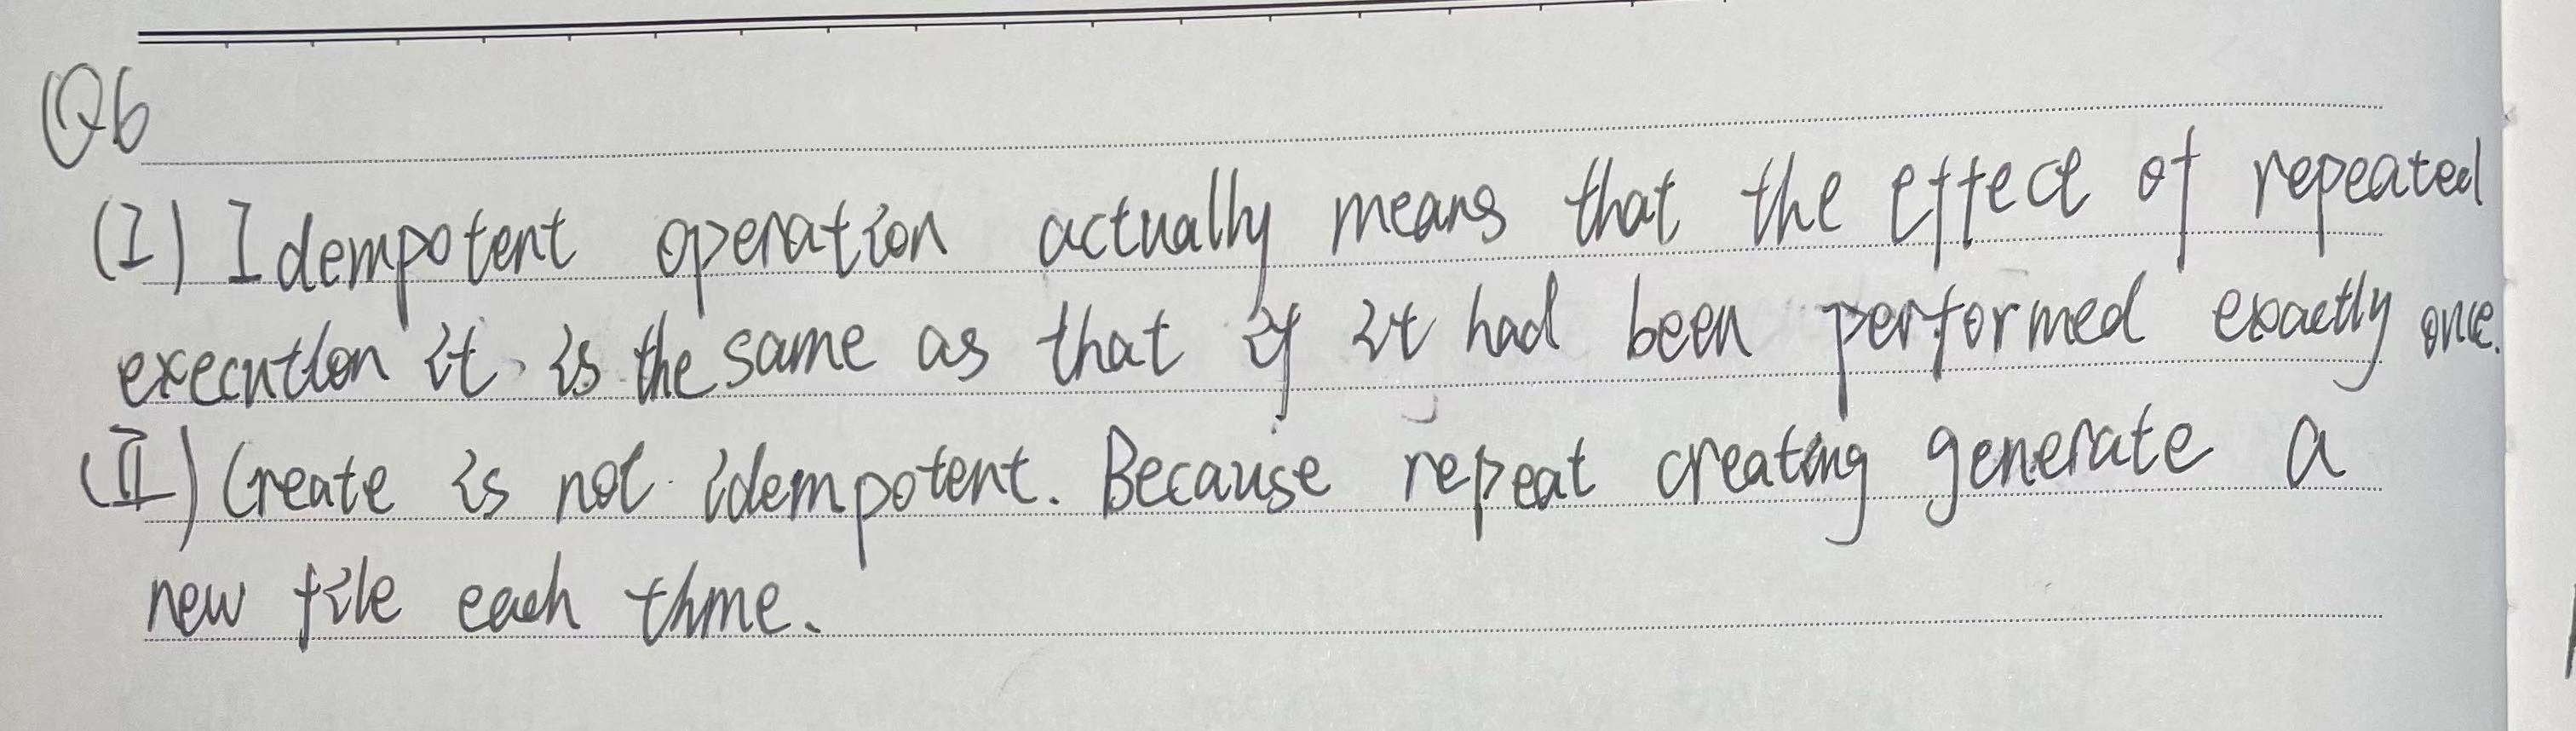 Q6
(I) Idempotent operation actually means that the effect of repeated
execution it is the same as that if it had been performed exactly once.
(II) Create is not idempotent. Because repeat creating generate a
new file each time.